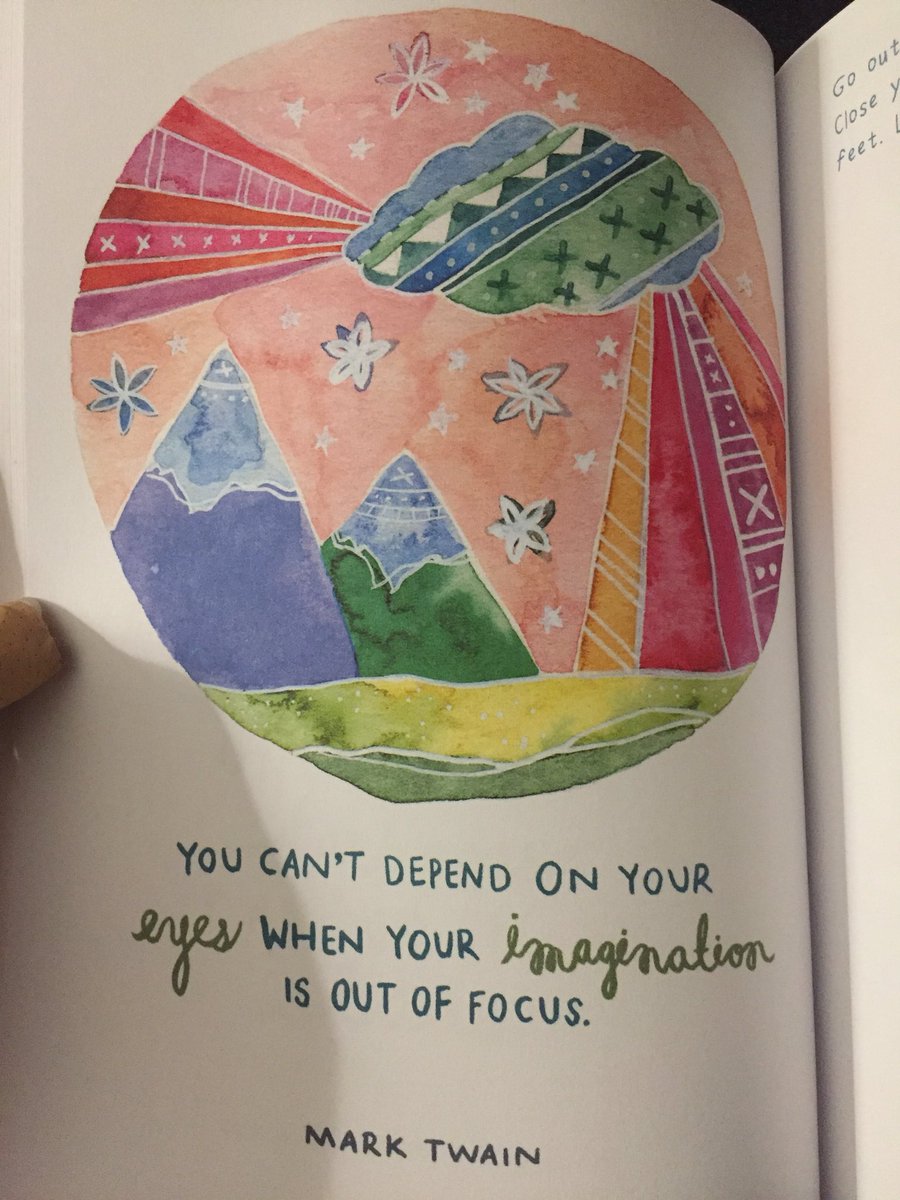 YOU CAN'T DEPEND ON YOUR
eyes WHEN YOUR imagination
IS OUT OF FOCUS.
MARK TWAIN
Go out
Close
feet.